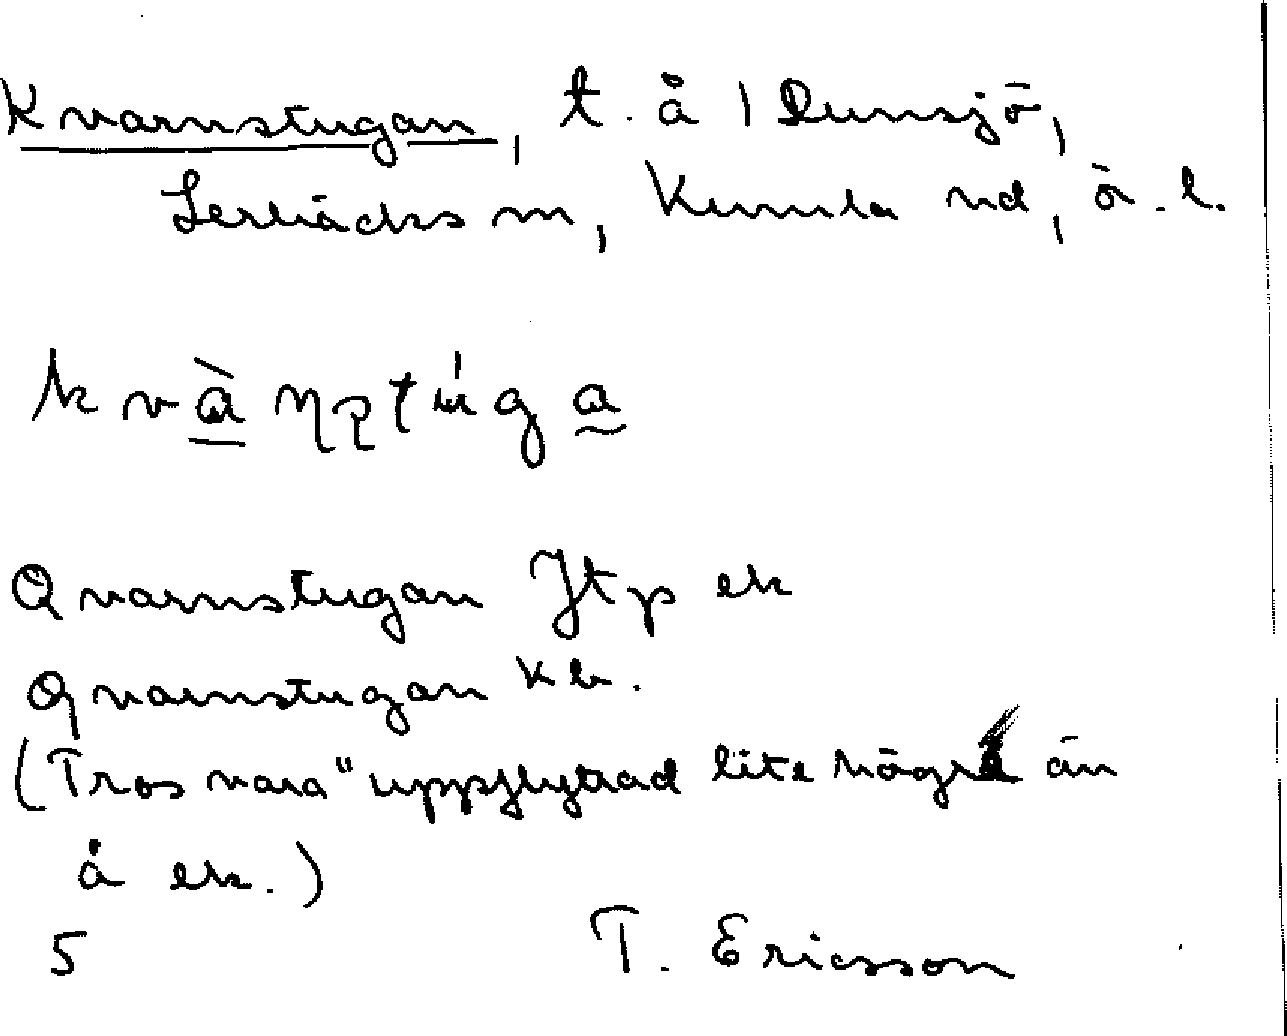 Kvarnstugan, t. å 1 Dunsjö,
Lerbäcks sn, Kumla hd, ö. l.
kvàn̥p̥túga
Qvarnstugan Jtp ek
Qvarnstugan kb.
(Tros vara "uppflyttad lite högre än
å ek.)
5 T. Ericsson